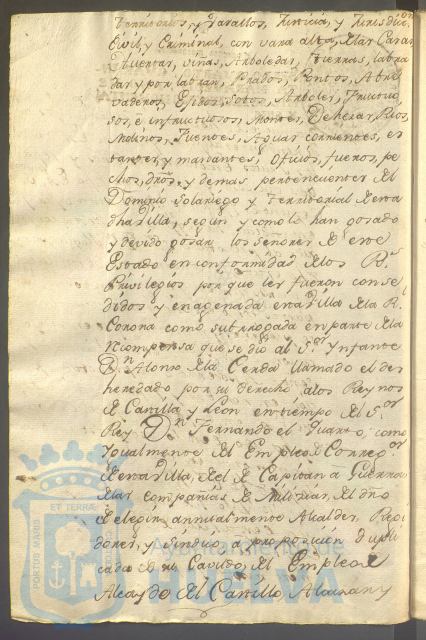 Territorios, y Vasallos, Justicia, y Jurisdic.
Civil, y Criminal, con vara alta, de las Casas
Huertas, viñas, Arboledas, tierras, labra
das y por labrar, Prados, Pastos, Abre
vaderos, Exidos, Sotos, Arboles, fructuo
sos, e infructuosos, Montes, Dehesas, Rios
Molinos, Fuentes, Aguas corrientes, es
tantes, y manantes; oficios, fueros, pe
chos, dros, y demas pertenecientes al
Dominio solariego y territorial de esta
dha Villa, segun y como lo han gosado
y devido gosar los señores de este
Estado en conformidad de los Rs.
Privilegios por que les fueron conse
didos y enagenada esta Villa de la R.
Corona como subrrogada en parte de la
Recompensa que se dio al Sor. Ynfante
Dn. Alonso de la Cerda llamado el des
heredado por su derecho a los Reynos
de Castilla y Leon en tiempo del Sor.
Rey Dn. Fernando el Quarto, como
Ygualmente del Empleo de Correg.or
de esta Villa, del de Capitan a Guerra
de las compañias de Milicias, del dro
de elegir annualmente Alcaldes, Regi
dores, y Sindico a proposicion dupli
cada de su Cavildo, del Empleo de
Alcayde del Castillo
PORTUS MARIS
ET TERRÆ
Ayuntamiento de
HUELVA